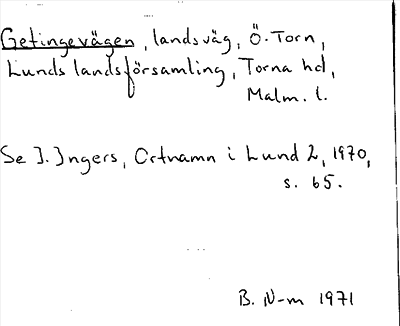 Getingevägen, landsväg, Ö. Torn,
Lunds landsförsamling, Torna hd,
Malm. l.
Se I. Ingers, Ortnamn i Lund 2, 1970,
s. 65.
B. N-m 1971